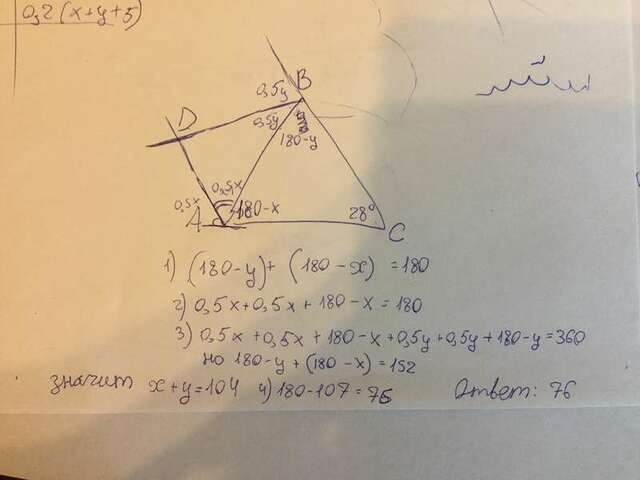 0,2(x+y+5)
B
0,5y
D
0,5y
180-y
0,5x
0,5x
A
180-x
28°
C
1) (180-y)+(180-x)=180
2) 0,5x+0,5x+180-x=180
3) 0,5x+0,5x+180-x+0,5y+0,5y+180-y=360
но 180-y+(180-x)=152
значит x+y=104 4) 180-107=76 Ответ: 76